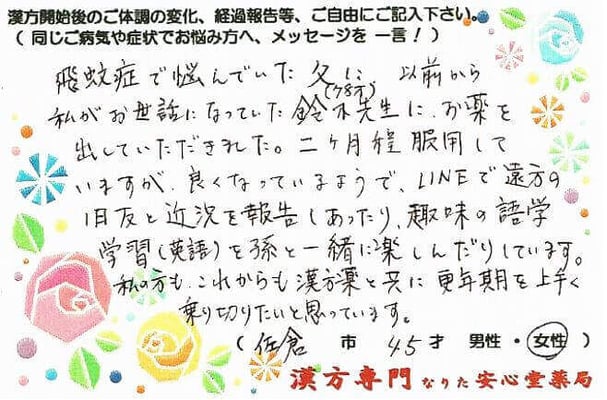 漢方開始後のご体調の変化、経過報告等、ご自由にご記入下さい。
（同じご病気や症状でお悩み方へ、メッセージを一言！）
飛蚊症で悩んでいた父に(78才) 以前から
私がお世話になっていた鈴木先生に、お薬を
出していただきました。二ヶ月程服用して
いますが、良くなっているようで、LINEで遠方の
旧友と近況を報告しあったり、趣味の語学
学習(英語)を孫と一緒に楽しんだりしています。
私の方も、これからも漢方薬と共に更年期を上手く
乗り切りたいと思っています。
（佐倉 市 45才 男性・女性）
漢方専門 なりた 安心堂薬局